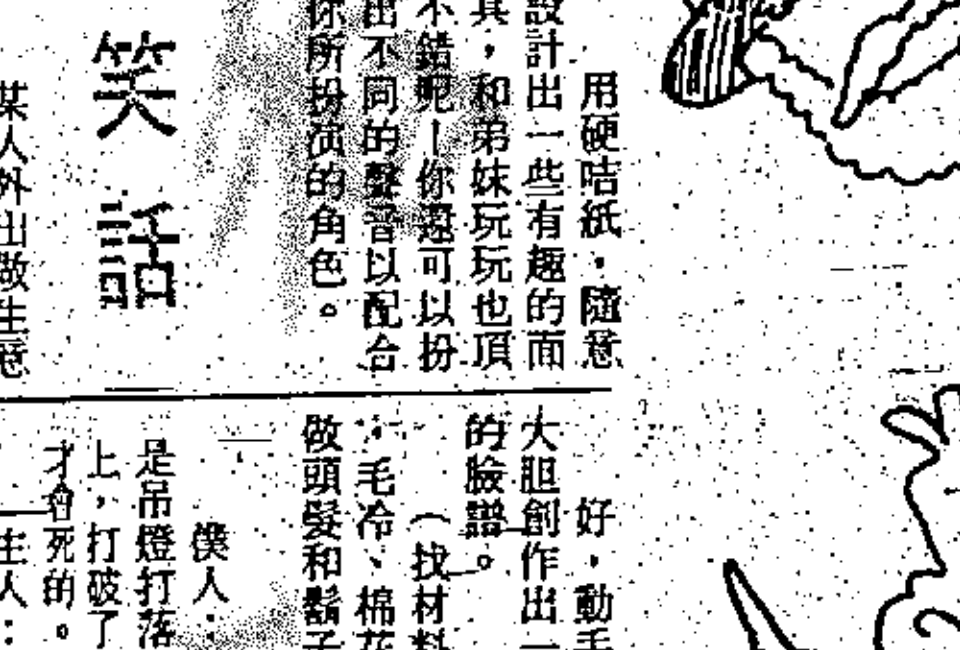 用硬咭紙，隨意
設計出一些有趣的面
其，和弟妹玩玩也頂
不錯呢！你還可以扮
出不同的聲音以配合
你所扮演的角色。
笑話
某人外出做生意
好，動手
大胆創作出一
的臉譜。
（找材料
：毛冷、棉花
做頭髮和鬍子
僕人：
是吊燈打落
上，打破了
才會死的。
生人：